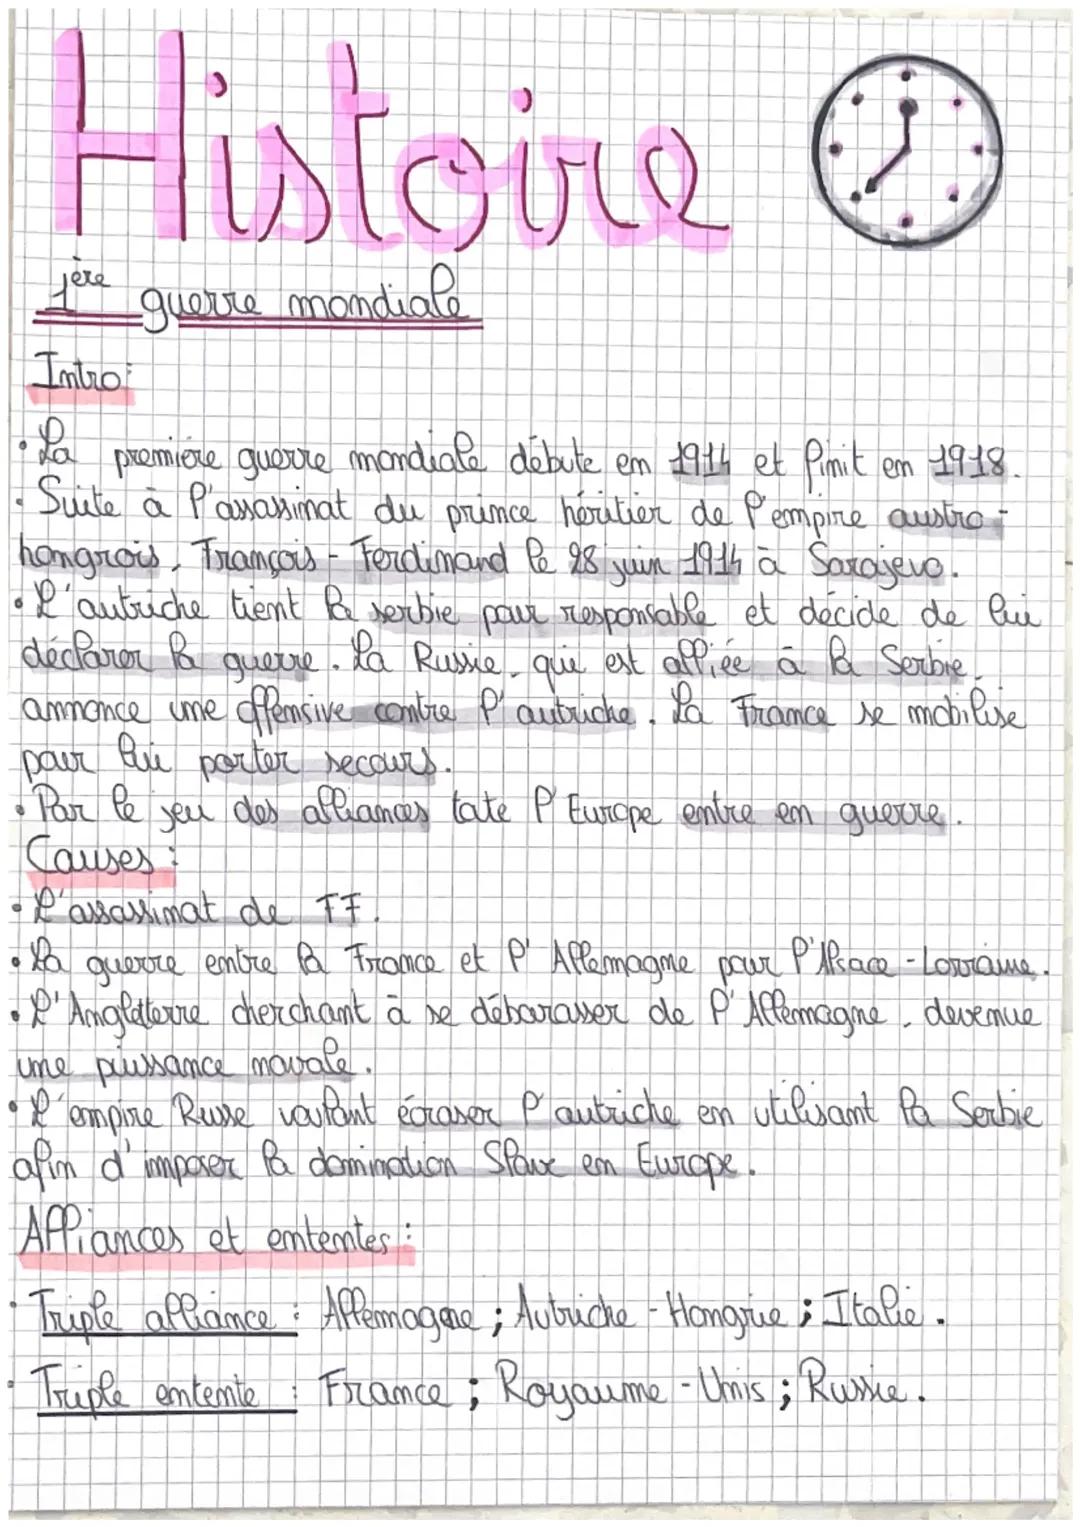 Histoire
1ère guerre mondiale
Intro:
• La première guerre mondiale débute en 1914 et finit en 1918.
• Suite à l'assassinat du prince héritier de l'empire austro-
hongrois, François-Ferdinand le 28 juin 1914 à Sarajevo.
• L'autriche tient la serbie pour responsable et décide de lui
déclarer la guerre. La Russie, qui est alliée à la Serbie,
annonce une offensive contre l'autriche. La France se mobilise
pour lui porter secours.
• Par le jeu des alliances toute l'Europe entre en guerre.
Causes :
• L'assassinat de FF.
• La guerre entre la France et l'Allemagne pour l'Alsace-Lorraine.
• L'Angleterre cherchant à se débarasser de l'Allemagne, devenue
une puissance navale.
• L'empire Russe voulant écraser l'autriche en utilisant la Serbie
afin d'imposer la domination Slave en Europe.
Alliances et ententes :
• Triple alliance : Allemagne ; Autriche-Hongrie ; Italie.
• Triple entente : France ; Royaume-Unis ; Russie.